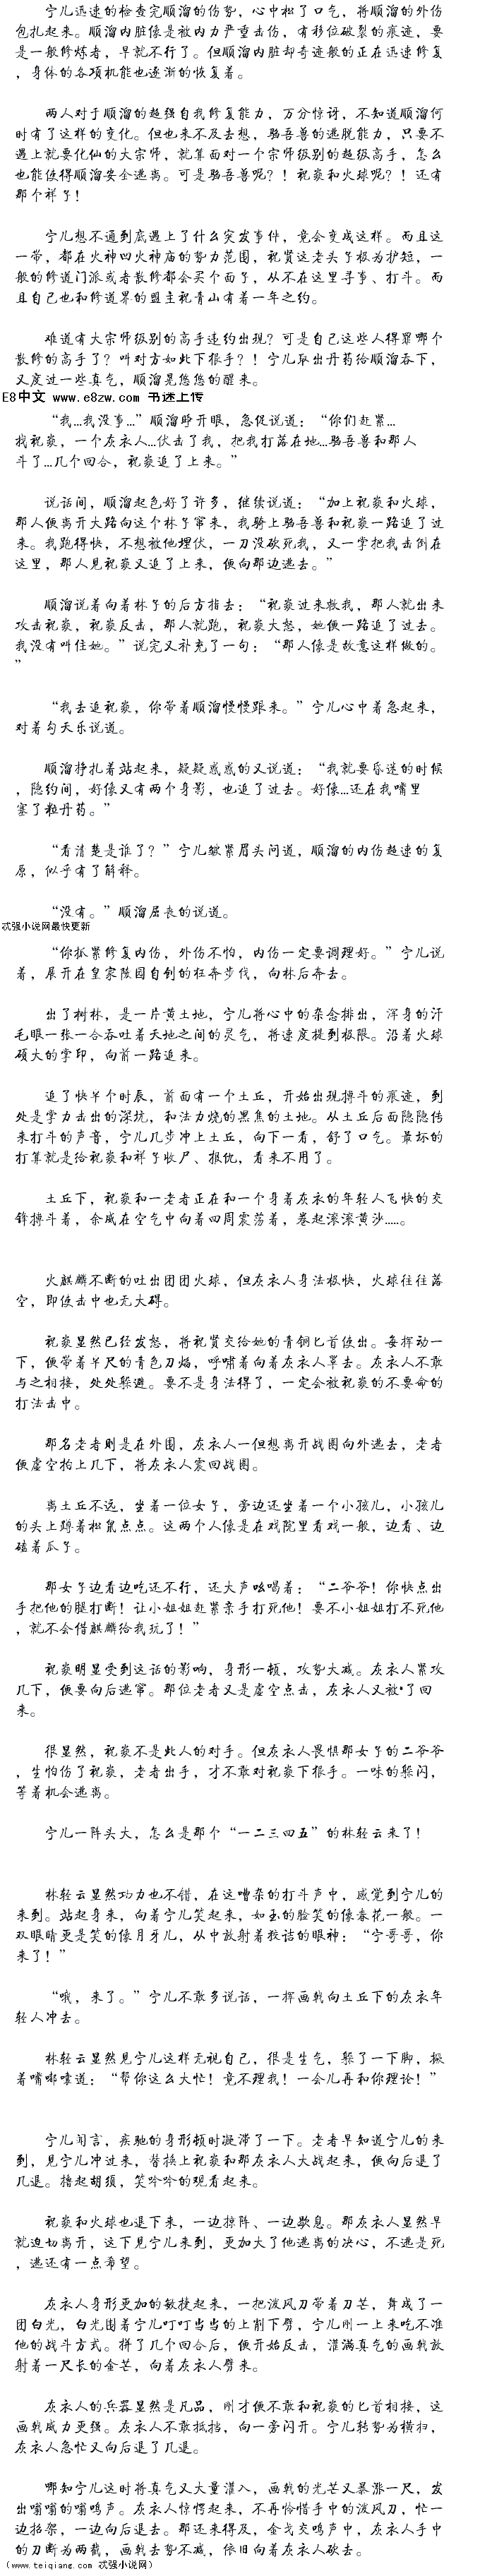 宁儿迅速的检查完顺溜的伤势，心中松了口气，将顺溜的外伤
包扎起来。顺溜内脏像是被内力严重击伤，有移位破裂的痕迹，要
是一般修炼者，早就不行了。但顺溜内脏却奇迹般的正在迅速修复
，身体的各项机能也逐渐的恢复着。
两人对于顺溜的超强自我修复能力，万分惊讶，不知道顺溜何
时有了这样的变化。但也来不及去想，驺吾兽的逃脱能力，只要不
遇上就要化仙的大宗师，就算面对一个宗师级别的超级高手，怎么
也能使得顺溜安全逃离。可是驺吾兽呢？！祝融和火球呢？！还有
那个祥子！
宁儿想不通到底遇上了什么突发事件，竟会变成这样。而且这
一带，都在火神凹火神庙的势力范围，祝賨这老头子极为护短，一
般的修道门派或者散修都会买个面子，从不在这里寻事、打斗。而
且自己也和修道界的盟主祝青山有着一年之约。
难道有大宗师级别的高手违约出现？可是自己这些人得罪哪个
散修的高手了？叫对方如此下狠手？！宁儿取出丹药给顺溜吞下，
又度过一些真气，顺溜晃悠悠的醒来。
E8中文 www.e8zw.com 书迷上传
“我…我没事…”顺溜睁开眼，急促说道：“你们赶紧…
找祝融，一个灰衣人…伏击了我，把我打落在地…驺吾兽和那人
斗了…几个回合，祝融追了上来。”
说话间，顺溜起色好了许多，继续说道：“加上祝融和火球，
那人便离开大路向这个林子窜来，我骑上驺吾兽和祝融一路追了过
来。我跑得快，不想被他埋伏，一刀没砍死我，又一掌把我击倒在
这里，那人见祝融又追了上来，便向那边逃去。”
顺溜说着向着林子的后方指去：“祝融过来救我，那人就出来
攻击祝融，祝融反击，那人就跑，祝融大怒，她便一路追了过去。
我没有叫住她。”说完又补充了一句：“那人像是故意这样做的。
”
“我去追祝融，你带着顺溜慢慢跟来。”宁儿心中着急起来，
对着勾天乐说道。
顺溜挣扎着站起来，疑疑惑惑的又说道：“我就要昏迷的时候
，隐约间，好像又有两个身影，也追了过去。好像…还在我嘴里
塞了粒丹药。”
“看清楚是谁了？”宁儿皱紧眉头问道，顺溜的内伤超速的复
原，似乎有了解释。
“没有。”顺溜屈丧的说道。
忒强小说网最快更新
“你抓紧修复内伤，外伤不怕，内伤一定要调理好。”宁儿说
着，展开在皇家陵园自创的狂奔步伐，向林后奔去。
出了树林，是一片黄土地，宁儿将心中的杂念排出，浑身的汗
毛眼一张一合吞吐着天地之间的灵气，将速度提到极限。沿着火球
硕大的掌印，向前一路追来。
追了快半个时辰，前面有一个土丘，开始出现搏斗的痕迹，到
处是掌力击出的深坑，和法力烧的黑焦的土地。从土丘后面隐隐传
来打斗的声音，宁儿几步冲上土丘，向下一看，舒了口气。最坏的
打算就是给祝融和祥子收尸、报仇，看来不用了。
土丘下，祝融和一老者正在和一个身着灰衣的年轻人飞快的交
锋搏斗着，余威在空气中向着四周震荡着，卷起滚滚黄沙……。
火麒麟不断的吐出团团火球，但灰衣人身法极快，火球往往落
空，即使击中也无大碍。
祝融显然已经发怒，将祝賨交给她的青铜匕首使出。每挥动一
下，便带着半尺的青色刀焰，呼啸着向着灰衣人罩去。灰衣人不敢
与之相接，处处躲避。要不是身法得了，一定会被祝融的不要命的
打法击中。
那名老者则是在外围，灰衣人一但想离开战圈向外逃去，老者
便虚空拍上几下，将灰衣人震回战圈。
离土丘不远，坐着一位女子，旁边还坐着一个小孩儿，小孩儿
的头上蹲着松鼠点点。这两个人像是在戏院里看戏一般，边看、边
磕着瓜子。
那女子边看边吃还不行，还大声吆喝着：“二爷爷！你快点出
手把他的腿打断！让小姐姐赶紧亲手打死他！要不小姐姐打不死他
，就不会借麒麟给我玩了！”
祝融明显受到这话的影响，身形一顿，攻势大减。灰衣人紧攻
几下，便要向后逃窜。那位老者又是虚空点击，灰衣人又被 了回
来。
很显然，祝融不是此人的对手。但灰衣人畏惧那女子的二爷爷
，生怕伤了祝融，老者出手，才不敢对祝融下狠手。一味的躲闪，
等着机会逃离。
宁儿一阵头大，怎么是那个“一二三四五”的林轻云来了！
林轻云显然功力也不错，在这嘈杂的打斗声中，感觉到宁儿的
来到。站起身来，向着宁儿笑起来，如玉的脸笑的像春花一般。一
双眼睛更是笑的像月牙儿，从中放射着狡诘的眼神：“宁哥哥，你
来了！”
“哦，来了。”宁儿不敢多说话，一挥画戟向土丘下的灰衣年
轻人冲去。
林轻云显然见宁儿这样无视自己，很是生气，跺了一下脚，撅
着嘴嘟囔道：“帮你这么大忙！竟不理我！一会儿再和你理论！”
宁儿闻言，疾驰的身形顿时凝滞了一下。老者早知道宁儿的来
到，见宁儿冲过来，替换上祝融和那灰衣人大战起来，便向后退了
几退。捋起胡须，笑吟吟的观看起来。
祝融和火球也退下来，一边掠阵、一边歇息。那灰衣人显然早
就迫切离开，这下见宁儿来到，更加大了他逃离的决心，不逃是死
，逃还有一点希望。
灰衣人身形更加的敏捷起来，一把泼风刀带着刀芒，舞成了一
团白光，白光围着宁儿叮叮当当的上削下劈，宁儿刚一上来吃不准
他的战斗方式。拼了几个回合后，便开始反击，灌满真气的画戟放
射着一尺长的金芒，向着灰衣人劈来。
灰衣人的兵器显然是凡品，刚才便不敢和祝融的匕首相接，这
画戟威力更强。灰衣人不敢抵挡，向一旁闪开。宁儿转势为横扫，
灰衣人急忙又向后退了几退。
哪知宁儿这时将真气又大量灌入，画戟的光芒又暴涨一尺，发
出嗡嗡的嗡鸣声。灰衣人惊愕起来，不再怜惜手中的泼风刀，忙一
边招架，一边向后退去。那还来得及，金戈交鸣声中，灰衣人手中
的刀断为两截，画戟去势不减，依旧向着灰衣人砍去。
（www.teiqiang.com 忒强小说网）